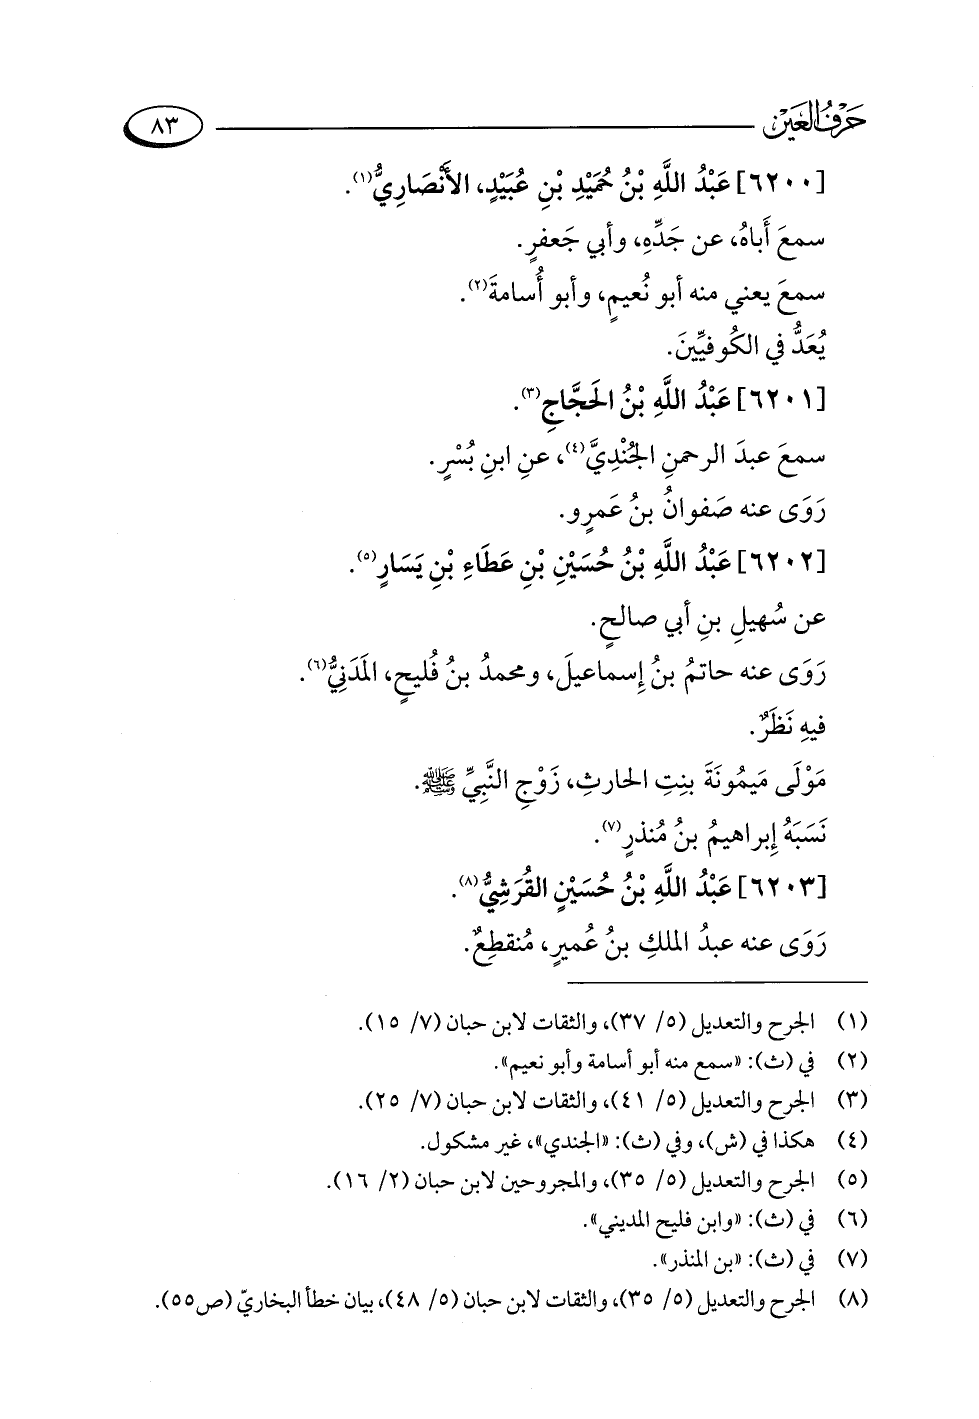 حَرْفُ العَيْن
٨٣
[٦٢٠٠] عَبْدُ اللَّهِ بْنُ حُمَيْدِ بْنِ عُبَيْدٍ، الأَنْصَارِيُّ(١).
سمعَ أَباهُ، عن جَدِّهِ، وأبي جَعفرٍ.
سمعَ يعني منه أبو نُعيمٍ، وأبو أُسامةَ(٢).
يُعَدُّ في الكُوفيِّينَ.
[٦٢٠١] عَبْدُ اللَّهِ بْنُ الحَجَّاجِ(٣).
سمعَ عبدَ الرحمنِ الجُنْدِيَّ(٤)، عنِ ابنِ بُسْرٍ.
رَوَى عنه صَفوانُ بنُ عَمرٍو.
[٦٢٠٢] عَبْدُ اللَّهِ بْنُ حُسَيْنِ بْنِ عَطَاءِ بْنِ يَسَارٍ(٥).
عن سُهيلِ بنِ أبي صالحٍ.
رَوَى عنه حاتمُ بنُ إسماعيلَ، ومحمدُ بنُ فُليحٍ، المَدَنِيُّ(٦).
فيهِ نَظَرٌ.
مَوْلَى مَيمُونَةَ بنتِ الحارثِ، زَوْجِ النَّبِيِّ ﷺ.
نَسَبَهُ إبراهيمُ بنُ مُنذرٍ(٧).
[٦٢٠٣] عَبْدُ اللَّهِ بْنُ حُسَيْنٍ القُرَشِيُّ(٨).
رَوَى عنه عبدُ الملكِ بنُ عُميرٍ، مُنقطِعٌ.
(١) الجرح والتعديل (٥/ ٣٧)، والثقات لابن حبان (٧/ ١٥).
(٢) في (ث): «سمع منه أبو أسامة وأبو نعيم».
(٣) الجرح والتعديل (٥/ ٤١)، والثقات لابن حبان (٧/ ٢٥).
(٤) هكذا في (ش)، وفي (ث): «الجندي»، غير مشكول.
(٥) الجرح والتعديل (٥/ ٣٥)، والمجروحين لابن حبان (٢/ ١٦).
(٦) في (ث): «وابن فليح المديني».
(٧) في (ث): «بن المنذر».
(٨) الجرح والتعديل (٥/ ٣٥)، والثقات لابن حبان (٥/ ٤٨)، بيان خطأ البخاريّ (ص٥٥).